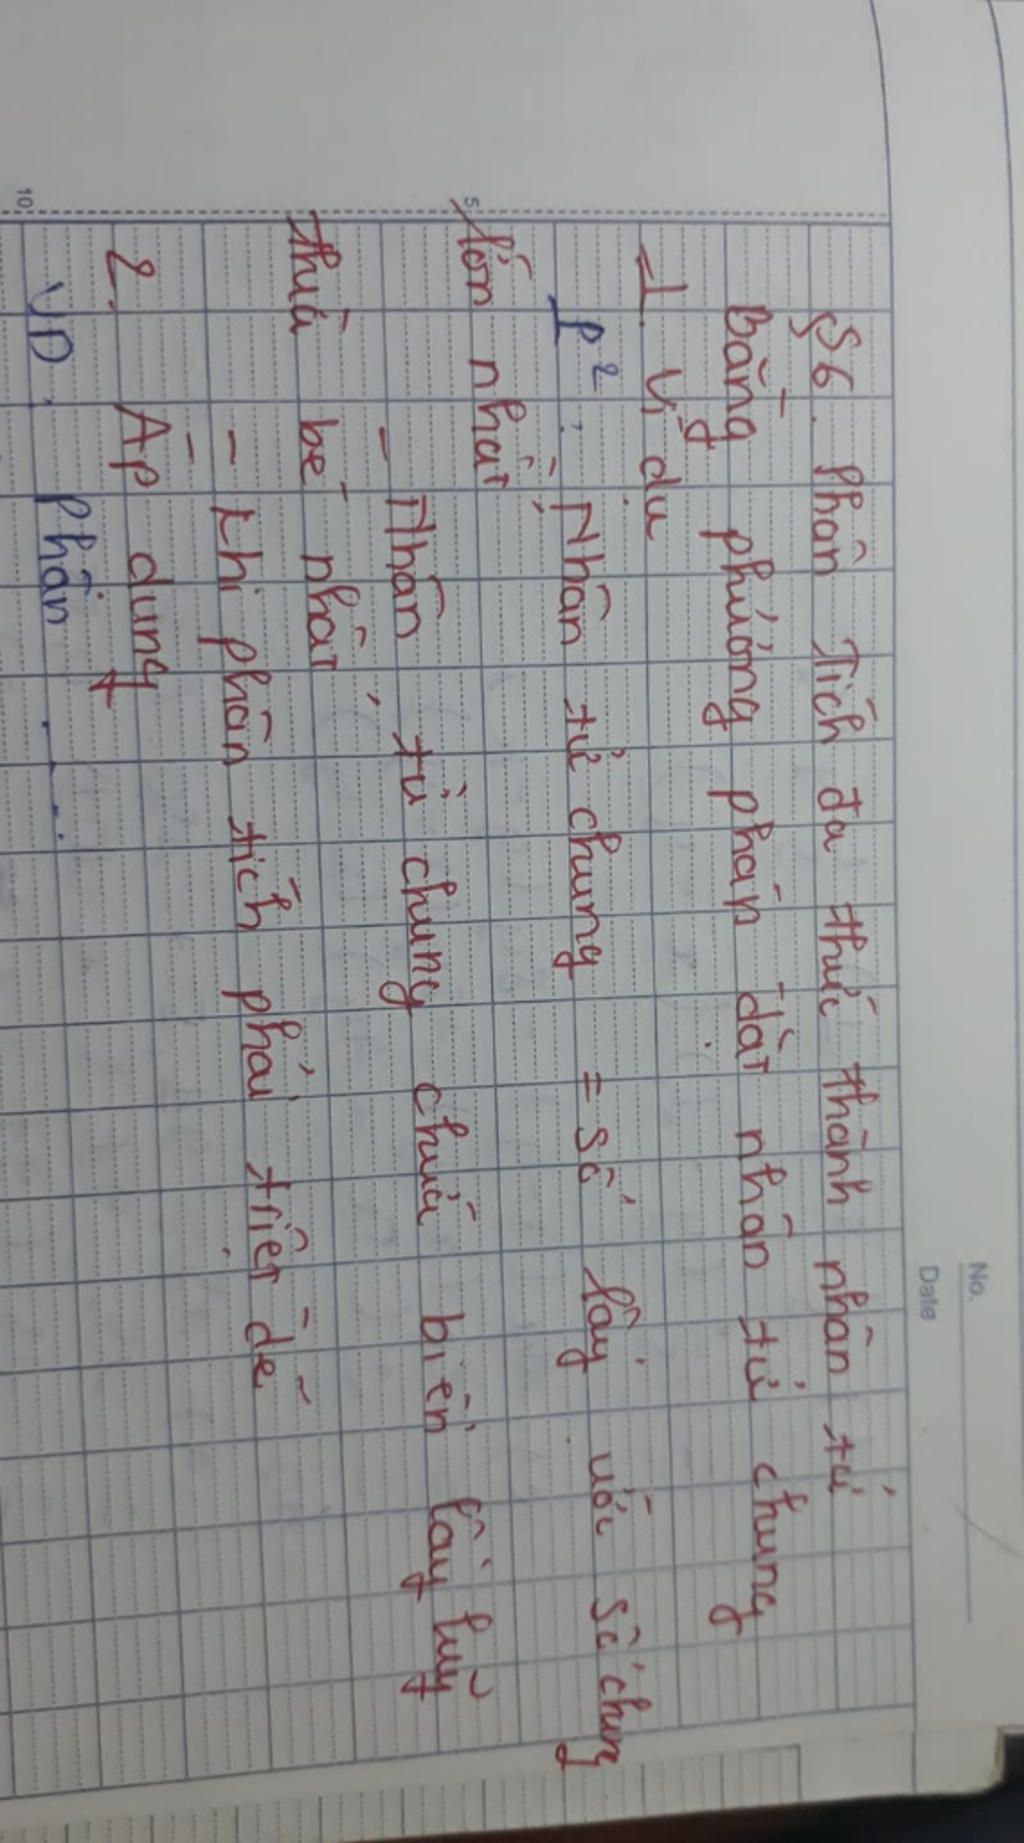 No.
Date
§6. Phân Tích đa thức thành nhân tử
Bằng phương pháp đặt nhân tử chung
1. Ví dụ
P²: Nhân tử chung = số lấy với số chung
lớn nhất
- Nhân tử chung chứa biến lấy luỹ
thừa bé nhất
- Khi phân tích phải triệt để
2. Áp dụng
VD. phân ....
5
10